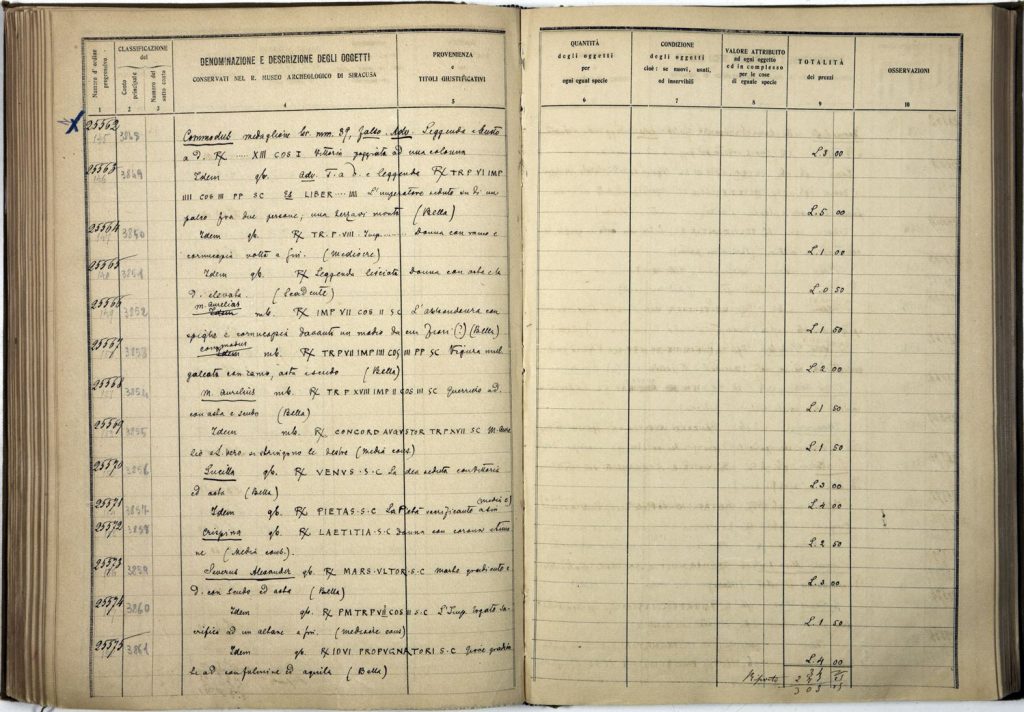 Numero d'ordine progressivo
CLASSIFICAZIONE del
Conto principale
Numero del sotto conto
DENOMINAZIONE E DESCRIZIONE DEGLI OGGETTI
CONSERVATI NEL R. MUSEO ARCHEOLOGICO DI SIRACUSA
PROVENIENZA
e
TITOLI GIUSTIFICATIVI
1 2 3 4 5
25562 3848 Commodus medaglione br. mm. 39, falso. Adv. Leggenda e busto
a d. R/ ..... XIII COS I Vittoria poggiata ad una colonna
25563 3849 Idem g/b. Adv. T. a d. e leggenda R/ TR P VI IMP
IIII COS III PP SC LIBER .... IIII L'imperatore seduto su di un
palco fra due persone; una terza vi monta (Bella)
25564 3850 Idem g/b. R/ TR. P. VIII. Imp. ........ Donna con ramo e
cornucopia volta a sin. (mediocre)
25565 3851 Idem g/b. R/ Leggenda lisciata Donna con asta e la
d. elevata (Scadente)
m. aurelius
25566 3852 Idem m/b. R/ IMP VII COS II SC L'abbondanza con
spighe e cornucopia davanti un modio da cui fiori (?) (Bella)
commodus
25567 3853 Idem m/b. R/ TR P VII IMP IIII COS III PP SC Figura mul.
galeata con ramo, asta e scudo (Bella)
25568 3854 M. Aurelius m/b. R/ TR P XVIII IMP II COS III SC Guerriero a d.
con asta e scudo (Bella)
25569 3855 Idem m/b. R/ CONCORD AVGVSTOR TR P XVII SC M. Aure
lio e L. Vero si stringono le destre (media cons)
25570 3856 Lucilla g/b. R/ VENVS . S . C La dea seduta con Vittoria
ed asta (Bella)
(media c)
25571 3857 Idem g/b. R/ PIETAS . S . C La Pietà sacrificante a sin
25572 3858 Crispina g/b. R/ LAETITIA . S . C Donna con corona e timo
ne (Media cons.).
25573 3859 Severus Alexander g/b. R/ MARS . VLTOR . S . C marte gradiente a
d. con scudo ed asta (Bella)
25574 3860 Idem g/b. R/ P M TR P VII COS II S . C L'Imp. togato sa
crifica ad un altare a sin. (mediocre cons)
25575 3861 Idem g/b. R/ IOVI PROPVGNATORI S . C Giove gradien
te a d. con fulmine ed aquila (Bella)
QUANTITÀ
degli oggetti
per
ogni egual specie
CONDIZIONE
degli oggetti
cioè: se nuovi, usati,
od inservibili
VALORE ATTRIBUITO
ad ogni oggetto
ed in complesso
per le cose
di eguale specie
TOTALITÀ
dei prezzi
OSSERVAZIONI
6 7 8 9 10
L. 3 00
L. 5 00
L. 1 00
L. 0 50
L. 1 50
L. 2 00
L. 1 50
L. 1 50
L. 3 00
L. 4 00
L. 2 50
L. 3 00
L. 1 50
L. 4 00
Riporto
303